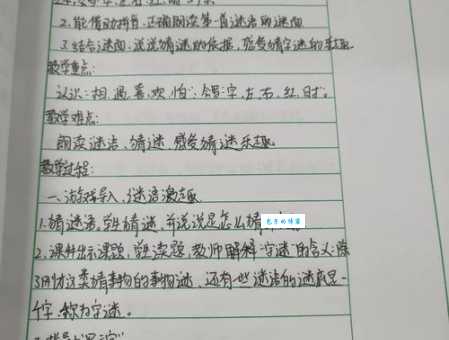 2.能借助拼音,正确朗读第一首谜语的谜面
3.结合谜面,说说猜谜的依据,感受猜字谜的乐趣
教学重点:
认识:相、遇、喜、欢、怕;会写:字、左、右、红、时。
教学难点:
朗读谜语、猜谜,感受猜谜乐趣
教学过程:
一、游戏导入,谜语激趣
1.猜谜语,学生猜谜,并说说是怎么猜
2.课件出示课题,学生读题,教师解释字谜的含义:除
了刚才这类猜事物的事物谜,还有一些谜语的谜底是一
个字,称为字谜。